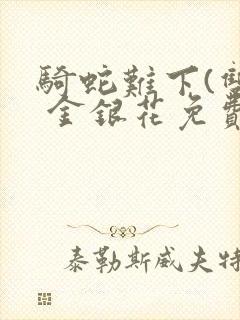 騎蛇難下(雙
金銀花免費
泰勒斯威夫特